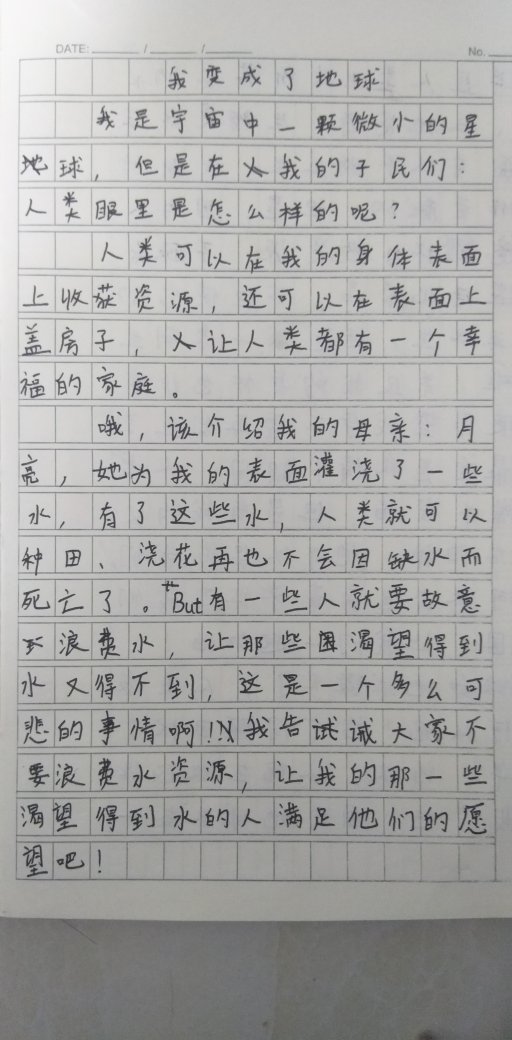 DATE: / /
No.
我变成了地球
我是宇宙中一颗微小的星
地球，但是在我的子民们：
人类眼里是怎么样的呢？
人类可以在我的身体表面
上收获资源，还可以在表面上
盖房子，让人类都有一个幸
福的家庭。
哦，该介绍我的母亲：月
亮，她为我的表面灌浇了一些
水，有了这些水，人类就可以
种田、浇花再也不会因缺水而
死亡了。But有一些人就要故意
浪费水，让那些渴望得到
水又得不到，这是一个多么可
悲的事情啊！我告诫大家不
要浪费水资源，让我的那一些
渴望得到水的人满足他们的愿
望吧！